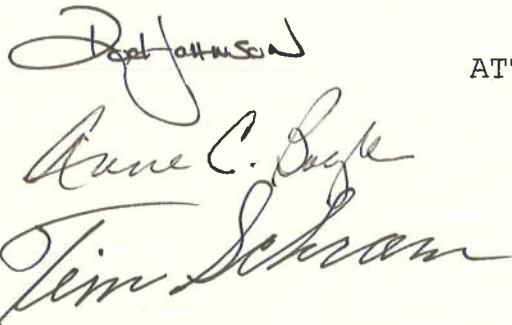 Johnson
AT
Anne C. Boyle
Tim Schram